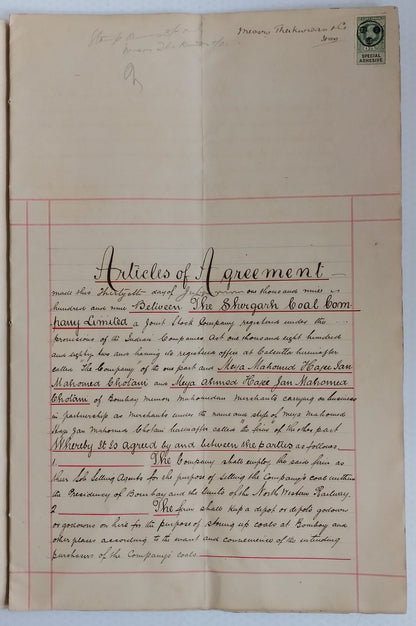 Messrs Thakurdas & Co
SPECIAL
ADHESIVE
Articles of Agreement
made this Thirtyeth day of one thousand nine
hundred and nine Between The Shergarh Coal Com-
pany Limited a Joint Stock Company registered under the
provisions of the Indian Companies Act one thousand eight hundred
and eighty two and having its registered office at Calcutta hereinafter
called The Company of the one part and Meya Mahomed Hajee Jan
Mahomed Chotani and Meya Ahmed Hajee Jan Mahomed
Chotani of Bombay Memon Mahomedan Merchants carrying on business
in partnership as Merchants under the name and style of Meya Mahomed
Haji Jan Mahomed Chotani hereinafter called "the firm" of the other part
Whereby It Is agreed by and between the parties as follows
1. The Company shall employ the said firm as
their Sole Selling Agents for the purpose of selling the Company's coal within
the Presidency of Bombay and the limits of the North Western Railway.
2 The firm shall keep a depot or depots godown
or godowns on hire for the purpose of storing up coals at Bombay and
other places according to the want and convenience of the intending
purchasers of the Company's coals